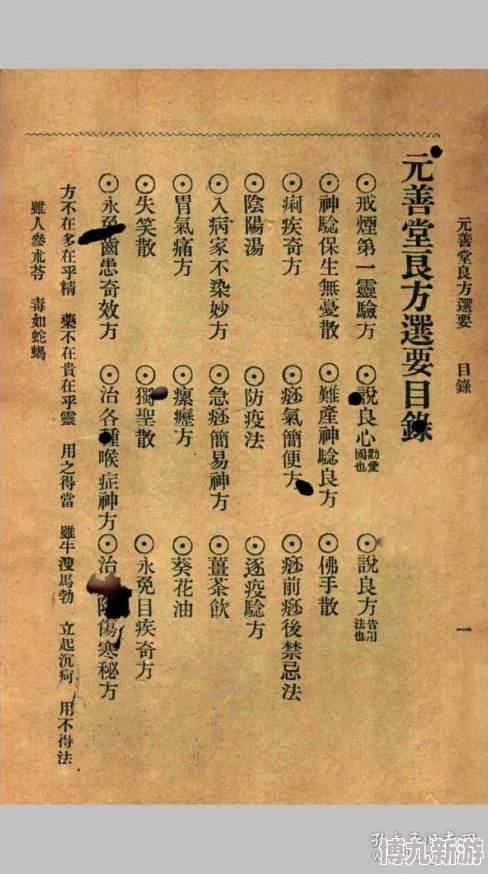 元善堂良方選要 目錄 一
元善堂良方選要目錄
⊙戒煙第一靈驗方 ⊙說良心勸愛國也 ⊙說良方皆用法也
⊙神驗保生無憂散 ⊙難產神驗良方 ⊙佛手散
⊙痢疾奇方 ⊙痧氣簡便方 ⊙痧前痧後禁忌法
⊙陰陽湯 ⊙防疫法 ⊙逐疫驗方
⊙入病家不染妙方 ⊙急痧簡易神方 ⊙薑茶飲
⊙胃氣痛方 ⊙瘰癧方 ⊙葵花油
⊙失笑散 ⊙獨聖散 ⊙永免目疾奇方
⊙永免齒患奇效方 ⊙治各種喉症神方 ⊙治傷寒秘方
方不在多在乎精 藥不在貴在乎靈 用之得當 雖牛溲馬勃 立起沉疴 用不得法
雖人參朮苓 毒如蛇蝎
博九新游